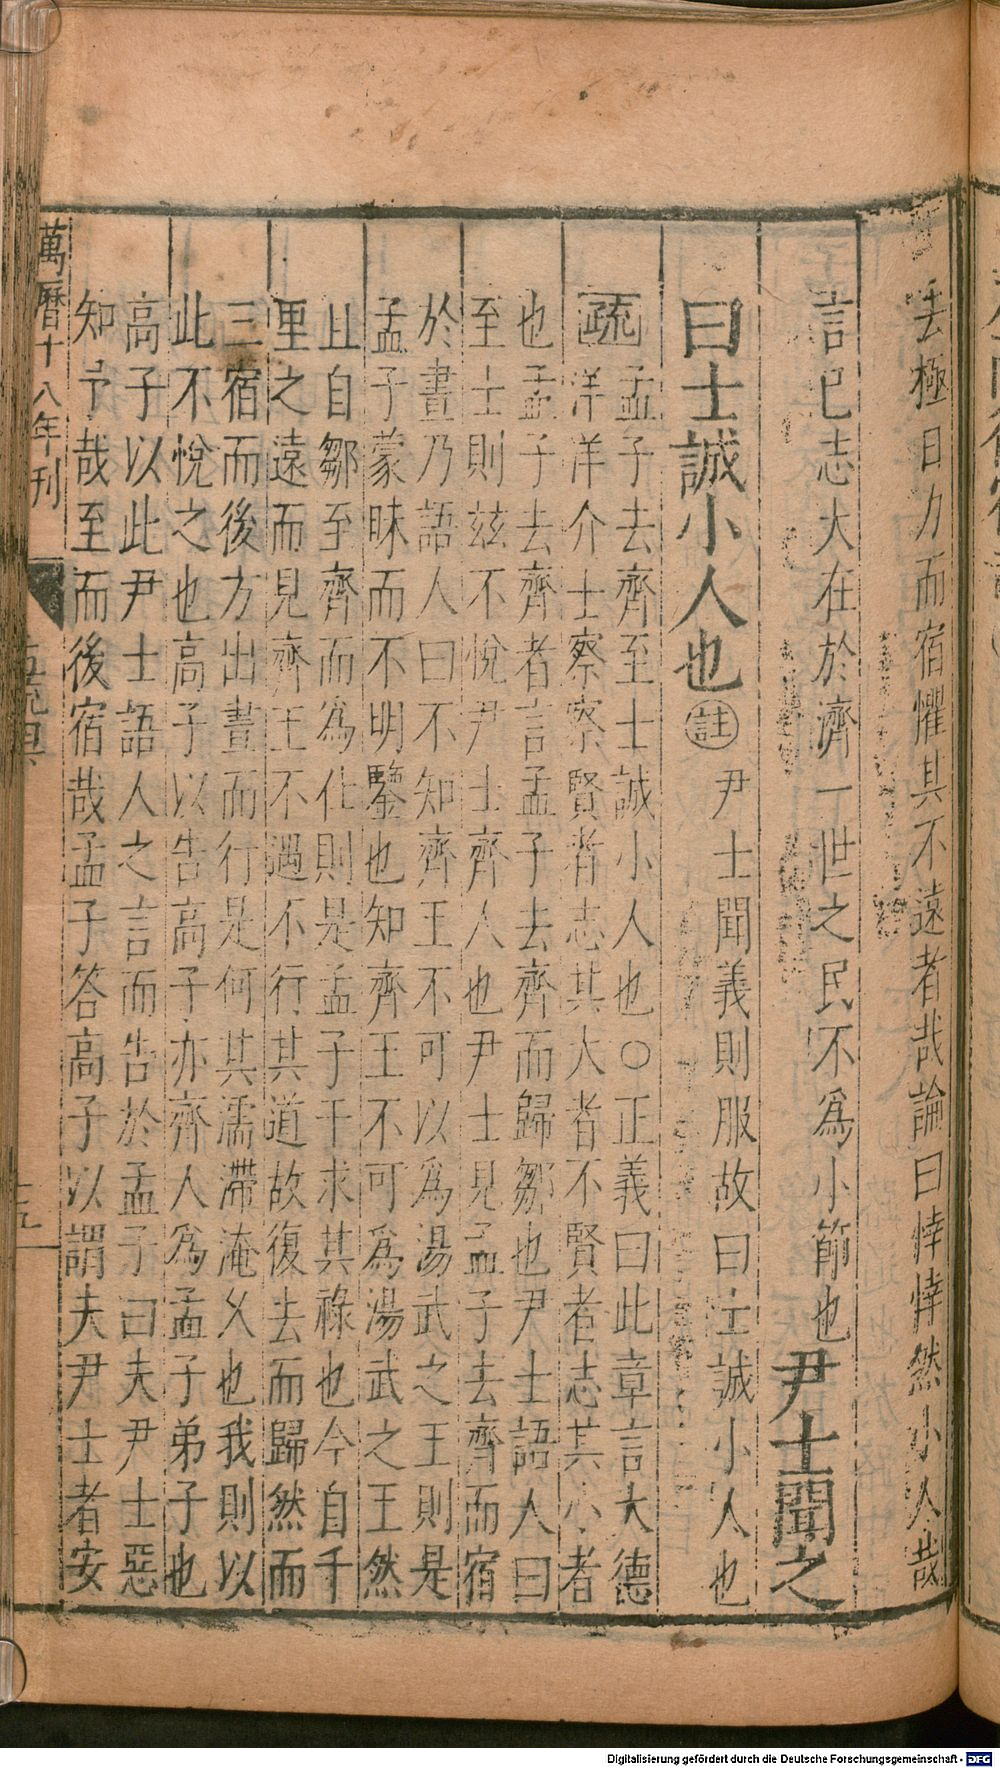 去極日力而宿懼其不遠者哉論曰悻悻然小人哉
言已志大在於濟一世之民不爲小節也尹士聞之
曰士誠小人也註尹士聞義則服故曰士誠小人也
疏
孟子去齊至士誠小人也○正義曰此章言大德
洋洋介士察察賢者志其大者不賢者志其小者
也孟子去齊者言孟子去齊而歸鄒也尹士語人曰
至士則玆不悅尹士齊人也尹士見孟子去齊而宿
於晝乃語人曰不知齊王不可以爲湯武之王則是
孟子蒙昧而不明鑒也知齊王不可爲湯武之王然
且自鄒至齊而爲化則是孟子干求其祿也今自千
里之遠而見齊王不遇不行其道故復去而歸然而
三宿而後方出晝而行是何其濡滯淹久也我則以
此不悅之也高子以告高子亦齊人爲孟子弟子也
高子以此尹士語人之言而告於孟子曰夫尹士惡
知予哉至而後宿哉孟子答高子以謂夫尹士者安
萬曆十八年刊
Digitalisierung gefördert durch die Deutsche Forschungsgemeinschaft - DFG